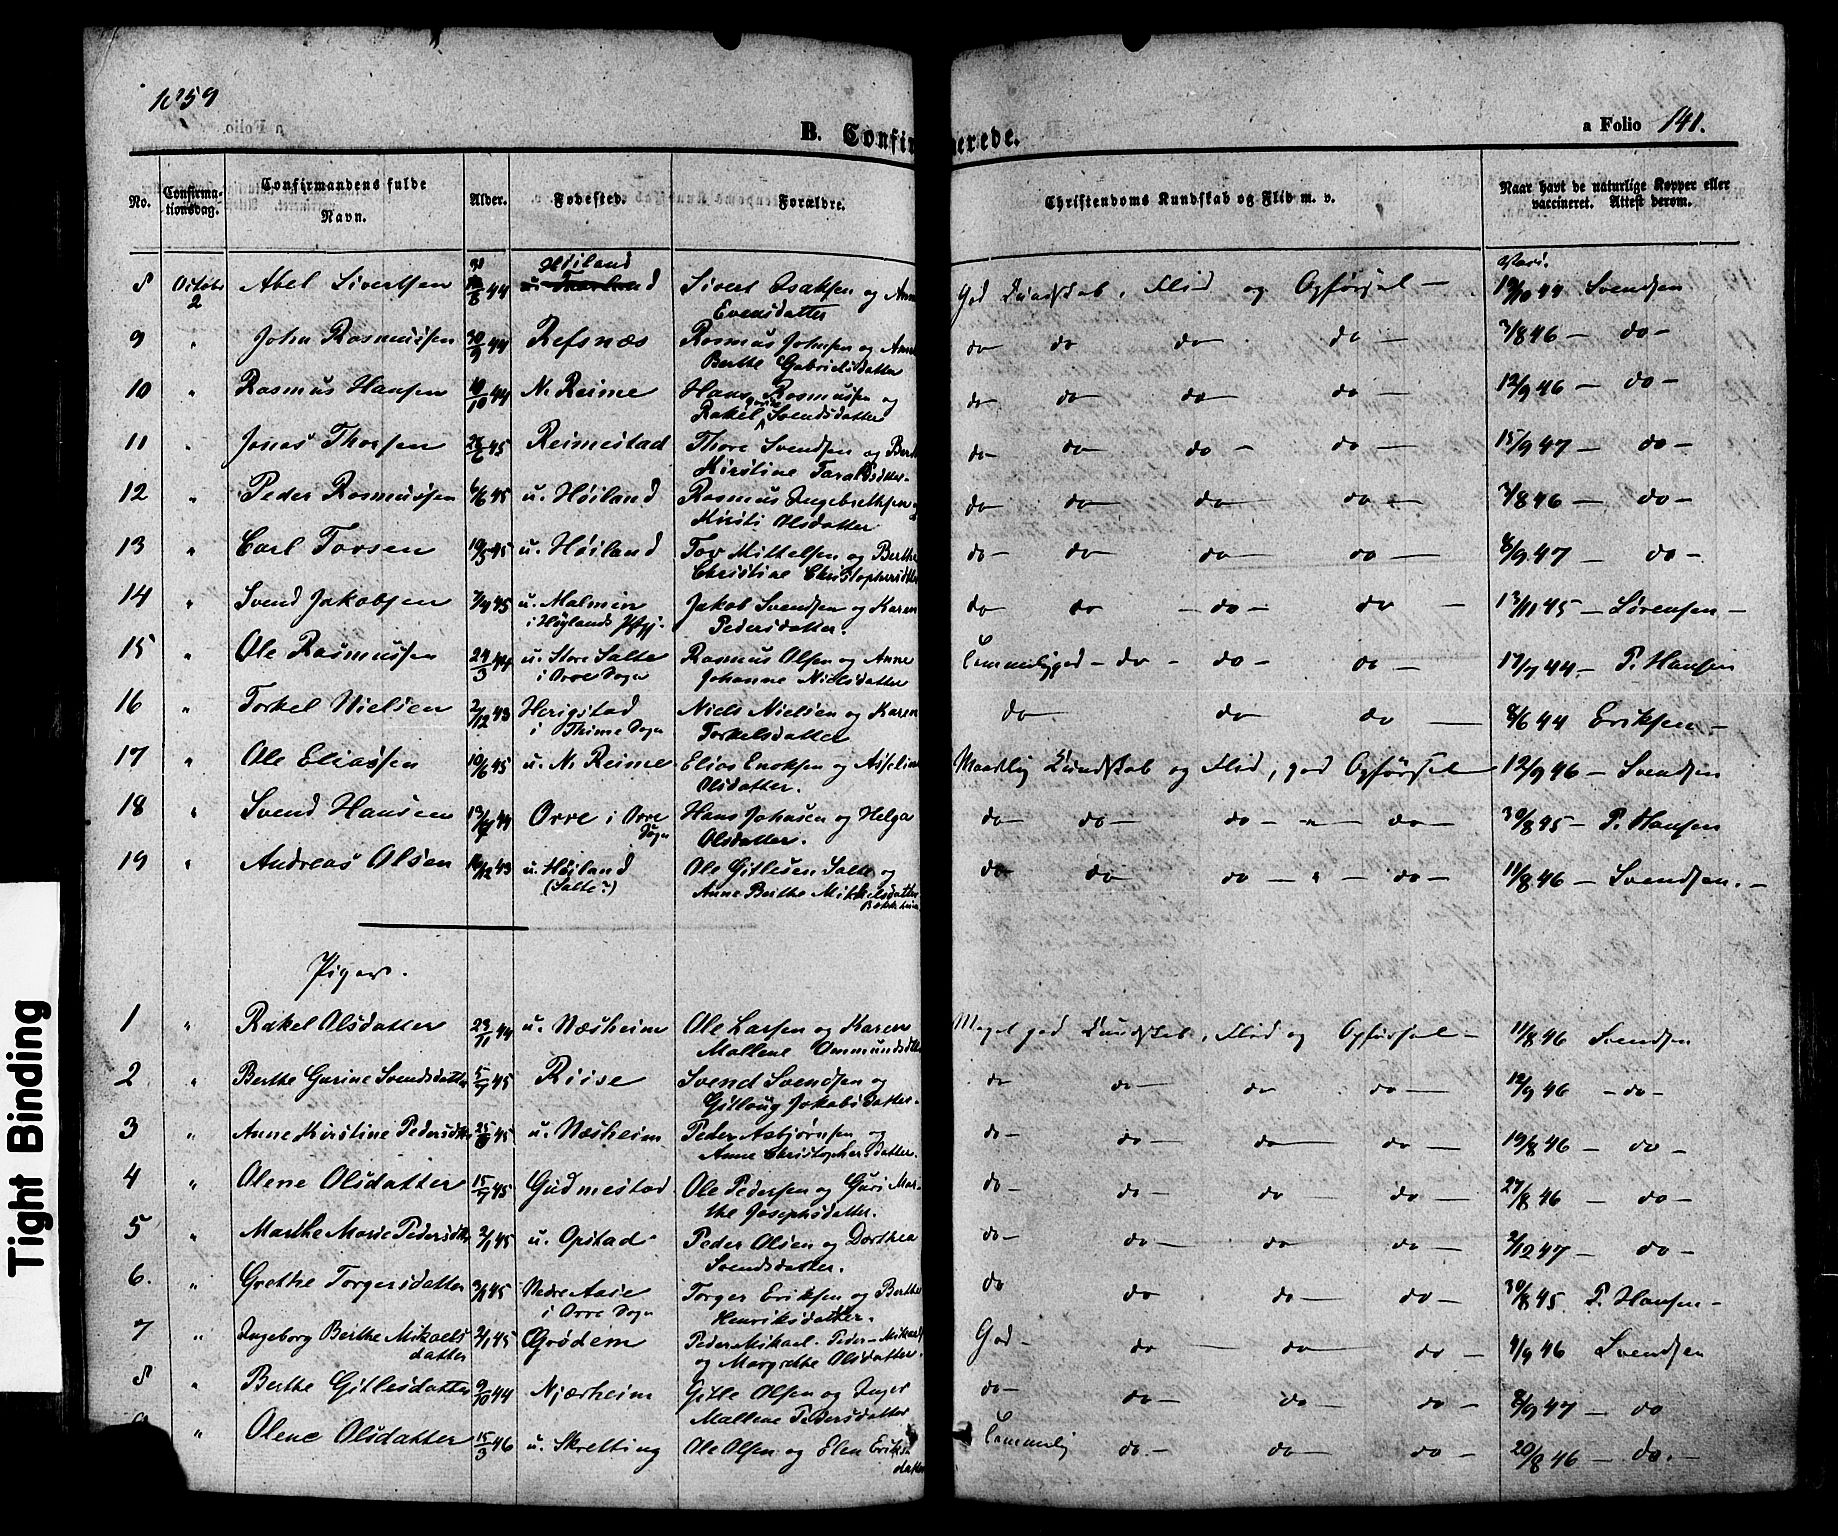 1859
B. Confirmerede.
a Folio 141.
No. Confirmationsdag. Confirmandens fulde Navn. Alder. Fødested. Forældre. Christendoms Kundskab og Flid m. v. Naar havt de naturlige Kopper eller vaccineret. Attest derom.
8 Octobr 2 Abel Sivertsen 44 u. Høiland Sivert Isaksen og Anne God Kundskab, Flid og Opførsel — Vacc. 19/10 44 Svendsen
Evensdatter
9 " John Rasmussen 30/9 44 Refsnæs Rasmus Johnsen og Anne do do do do — 3/8 46 — do —
Berthe Gabrielsdatter
10 " Rasmus Hansen 10/10 44 N. Reime Hans Rasmussen og do do do do — 12/9 46 — do —
Rakel Svendsdatter
11 " Jonas Thorsen 45 Reimestad Thore Svendsen og Berthe do do do — do — 15/9 47 — do —
Kirstine Taraldsdatter
12 " Peder Rasmussen 6/6 45 u. Høiland Rasmus Ingebrethsen og do do do do — 3/8 46 — do —
Kirsti Olsdatter
13 " Carl Torsen 19/5 45 u. Høiland Tov Kittelsen og Berthe do — do do do — 8/9 47 — do —
Christine Christophersdatter
14 " Svend Jakobsen 45 u. Malmin Jakob Svendsen og Karen do do — do — do — 13/11 45 — Sørensen —
i Høylands Pgj. Pedersdatter.
15 " Ole Rasmussen 24/3 44 u. Store Salte Rasmus Olsen og Anne Temmelig god — do — do — do — 17/7 44 — P. Hansen
i Orre Sogn Johanne Nielsdatter
16 " Torkel Nielsen 2/12 43 Herigstad Niels Nielsen og Karen do do do — 8/6 44 Eriksen —
i Thime Sogn Torkelsdatter
17 " Ole Eliassen 10/6 45 u. N. Reime Elias Enoksen og Asseline Maadelig Kundskab og Flid, god Opførsel 12/9 46 — Svendsen
Olsdatter.
18 " Svend Hansen 44 Orre i Orre Sogn Hans Johnsen og Helga do do — do — " — do — 30/8 45 — P. Hansen
Olsdatter.
19 " Andreas Olsen 16/12 43 u. Høiland Ole Gitlesen Salte og do do do — " — do — 11/8 46 — Svendsen. —
(Salte?) Anne Berthe Mikkelsdatter
Bekkeheien
Piger.
1 " Rakel Olsdatter 23/11 44 u. Næsheim Ole Larsen og Karen Meget god Kundskab, Flid og Opførsel — 11/8 46 Svendsen
Mallene Ommundsdatter
2 " Berthe Gurine Svendsdatter 5/7 45 Riise Svend Svendsen og do do — do do — 12/9 46 — do —
Gitlaug Jakobsdatter.
3 " Anne Kirstine Pedersdtr 45 u. Næsheim Peder Asbjørnsen og do — do — do do — 19/8 46 — do —
Anne Christophersdatter.
4 " Olene Olsdatter 15/7 45 Gudmestad Ole Pedersen og Guri Mar- do — do — do do — 27/8 46 — do —
the Josephsdatter.
5 " Marthe Marie Pedersdtr 2/1 45 u. Opstad Peder Olsen og Dorthea do — do — do do — 2/12 47 — do —
Svendsdatter.
6. " Grethe Torgersdatter 45 Nedre Aase Torger Eriksen og Berthe do do — do — do — 30/8 45. P. Hansen —
i Orre Sogn Henriksdatter.
7 " Ingeborg Berthe Mikaels 2/1 45 Grødem Peder Mikael Peder-Mikaels God — do — do — do — 9/9 46 Svendsen
datter og Margrethe Olsdatter.
8 " Berthe Gitlesdatter 9/10 44 Njærheim Gitle Olsen og Inger do — do — do do — 8/9 47 — do
Mallene Pedersdatter
9 " Olene Olsdatter 15/3 46 u. Skretting Ole Olsen og Elen Eriks Temmelig do. — do do — 20/8 46 — do. —
datter
Tight Binding